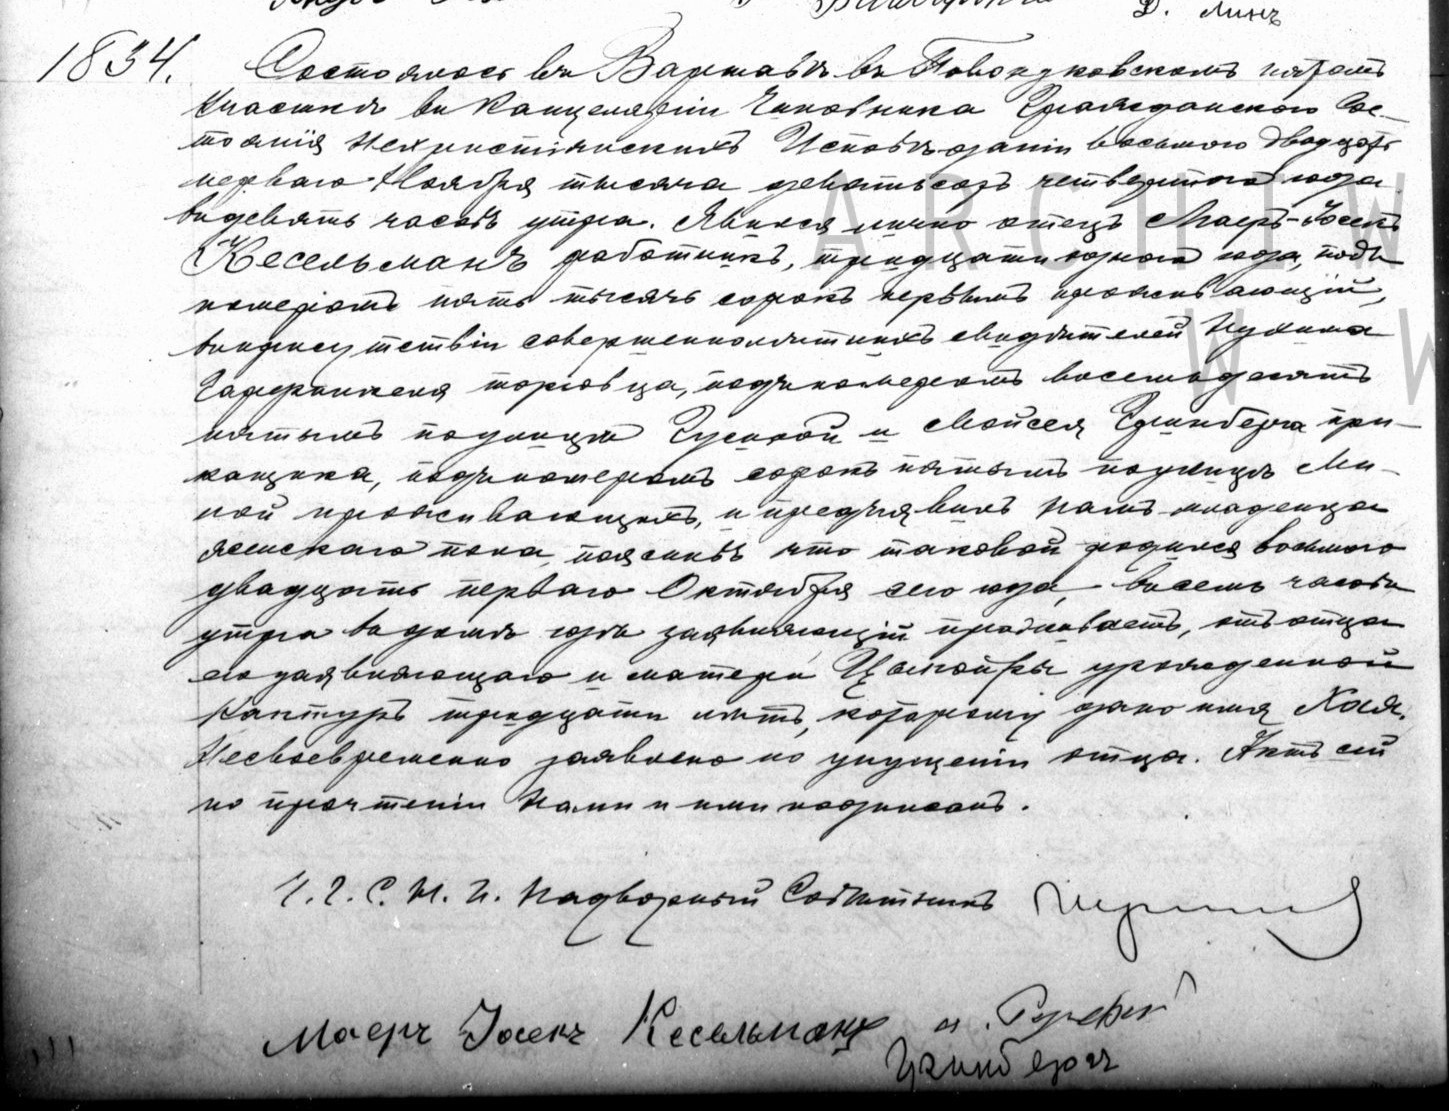 Д. Линъ
1834.
Состоялось въ Варшавѣ въ Повонзковскомъ пятомъ
участкѣ въ Канцеляріи Чиновника Гражданскаго Сос-
тоянія Нехристіанскихъ Исповѣданій восьмого двадцать
перваго Ноября тысяча девятьсотъ четвертаго года
въ девять часовъ утра. Явился лично отецъ Маеръ-Іосекъ
Кесельманъ работникъ, тридцати одного года, подъ
номеромъ пять тысячъ сорокъ первымъ проживающій,
въ присутствіи совершеннолѣтнихъ свидѣтелей Нухима
торговца, подъ номеромъ восемьдесятъ
пятымъ по улицѣ Гусиной и Мойсея Гринберга при-
кащика, подъ номеромъ сорокъ пятымъ по улицѣ Ми-
лой проживающихъ, и предъявилъ намъ младенца
женскаго пола, пояснивъ что таковой родился восьмого
двадцать перваго Октября сего года, въ семь часовъ
утра въ домѣ гдѣ заявляющій проживаетъ, отъ отца
его заявляющаго и матери Ципойры урожденной
Кантуръ тридцати лѣтъ, которому дано имя Хая.
Несвоевременно заявлено по упущенію отца. Актъ сей
по прочтеніи Нами и ими подписанъ.
Ч. Г. С. Н. И. Надворный Совѣтникъ
Маеръ Іосекъ Кесельманъ
Гринбергъ
ARCHIW
W W